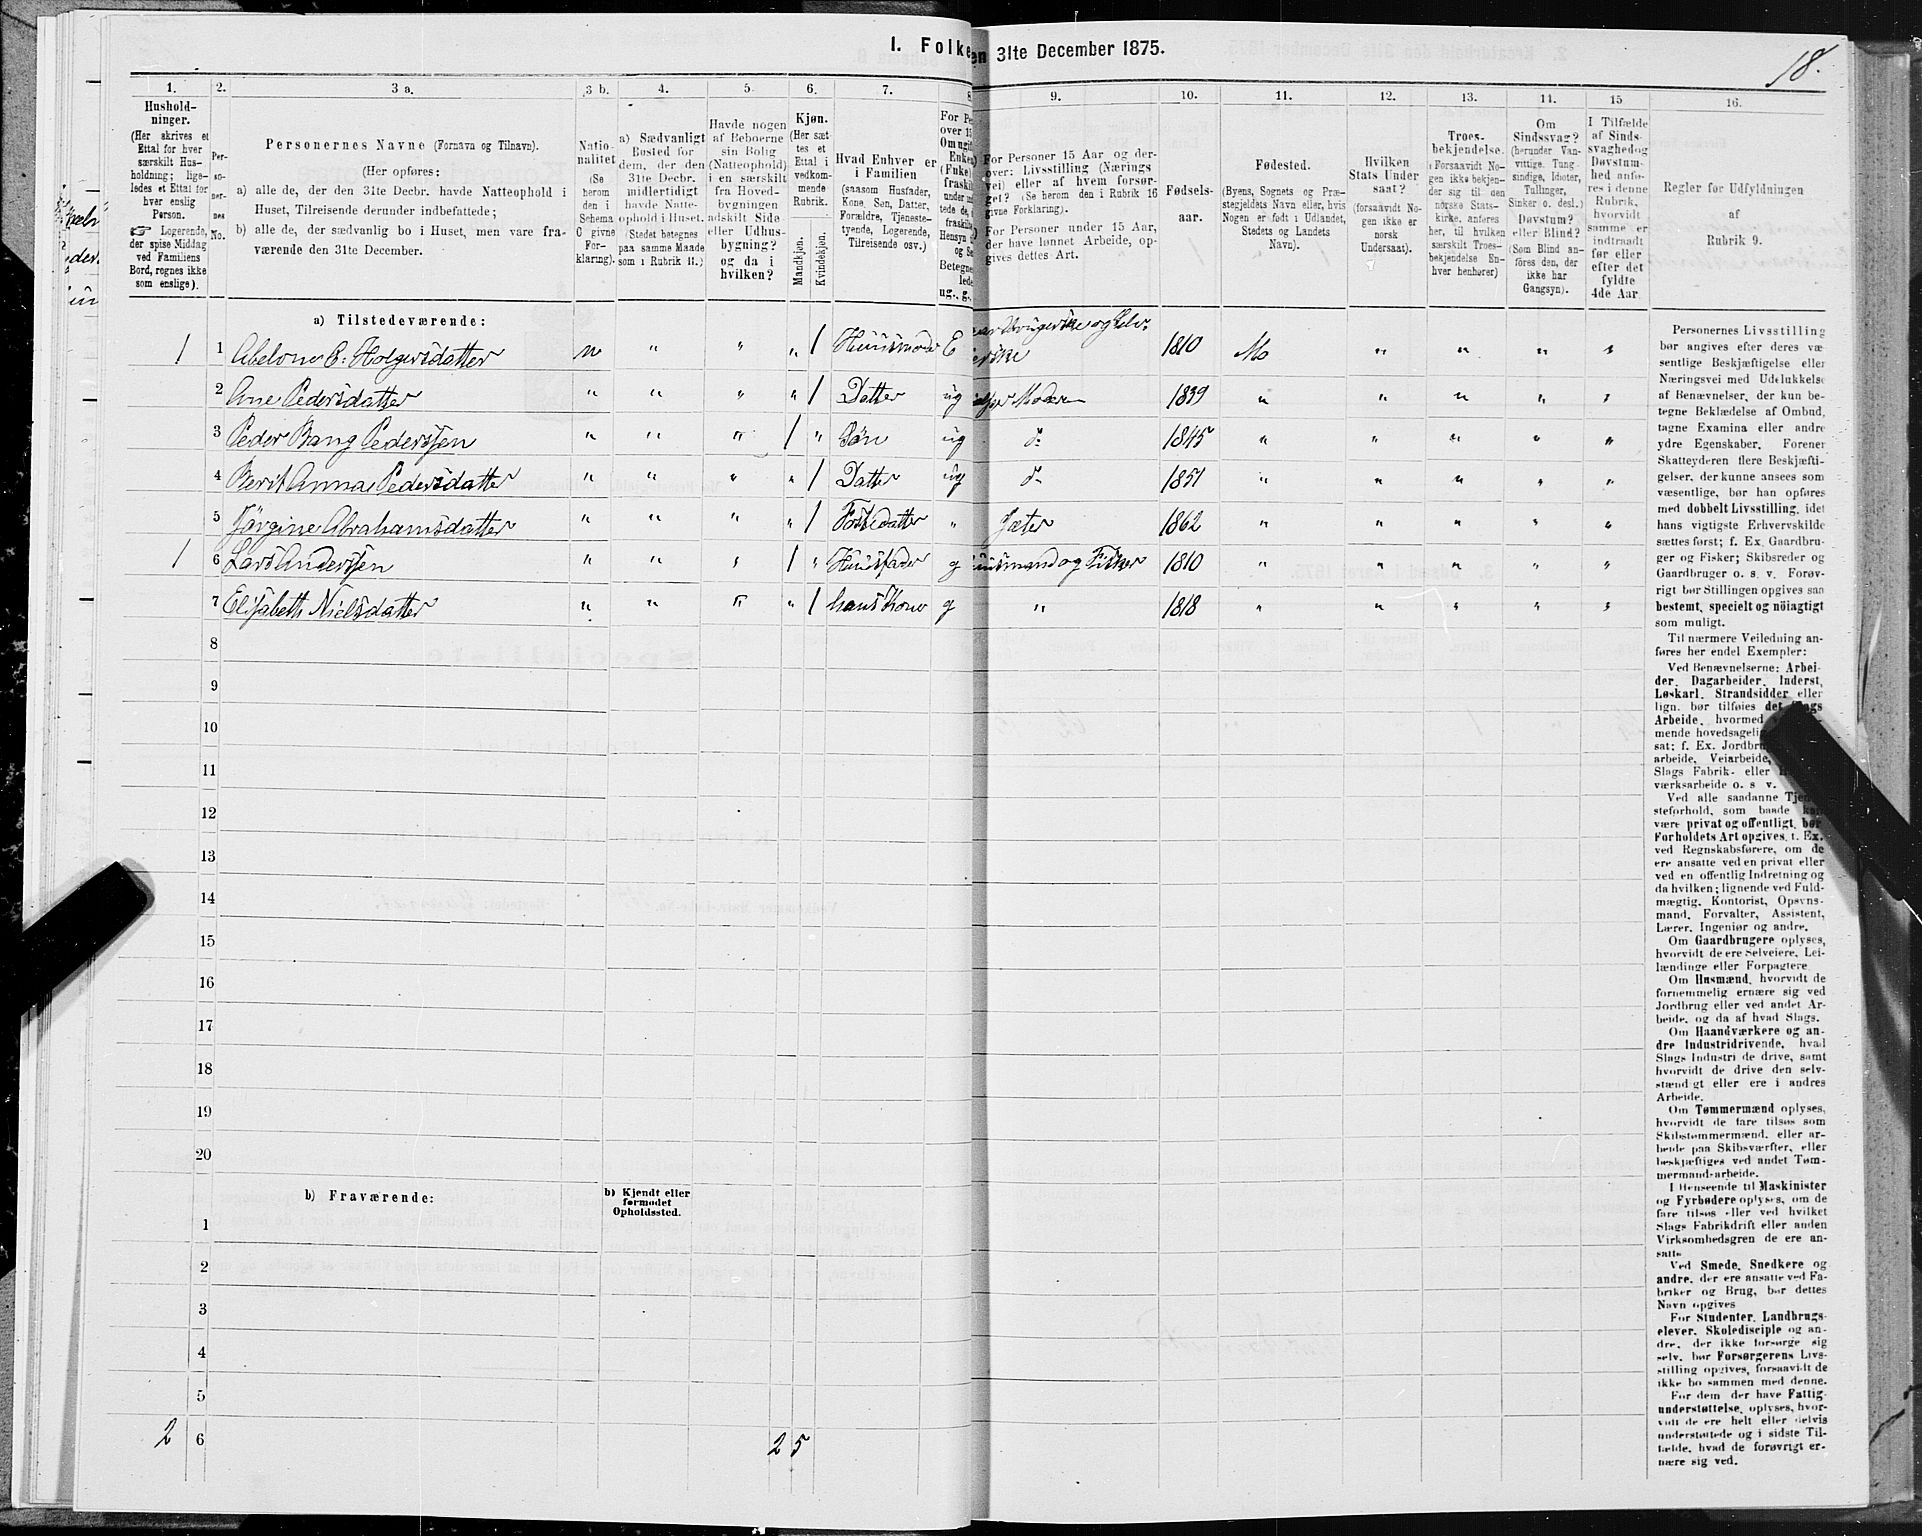 I. Folke
en 31te December 1875.
18.
1.
Hushold-
ninger.
(Her skrives et
Ettal for hver
særskilt Hus-
holdning; lige-
ledes et Ettal for
hver enslig
Person.
☞ Logerende,
der spise Middag
ved Familiens
Bord, regnes ikke
som enslige).
2.
Per-
so-
ner-
nes
No.
3 a.
Personernes Navne (Fornavn og Tilnavn).
(Her opføres:
a) alle de, der den 31te Decbr. havde Natteophold i
Huset, Tilreisende derunder indbefattede;
b) alle de, der sædvanlig bo i Huset, men vare fra-
værende den 31te December.
3 b.
Natio-
nalitet
(Se
herom
den i
Schema
C givne
For-
klaring).
4.
a) Sædvanligt
Bosted for
dem, der den
31te Decbr.
midlertidigt
havde Natte-
ophold i Huset.
(Stedet betegnes
paa samme Maade
som i Rubrik 11.)
5.
Havde nogen
af Beboerne
sin Bolig
(Natteophold)
i en særskilt
fra Hoved-
bygningen
adskilt Side
eller Udhus-
bygning?
og da i
hvilken?
6.
Kjøn.
(Her sæt-
tes et
Ettal i
vedkom-
mende
Rubrik.
Mandkjøn.
Kvindekjøn.
7.
Hvad Enhver er
i Familien
(saasom Husfader,
Kone, Søn, Datter,
Forældre, Tjeneste-
tyende, Logerende,
Tilreisende osv.)
8
For Pe
over 15
Om ugift
Enken
(Enke)
fraskil
under in
tede de,
fraskilte
Hensyn
og Se
Betegne
lede
ug., g.,
9.
For Personer 15 Aar og der-
over: Livsstilling (Nærings
vei) eller af hvem forsør-
get? (Se herom den i Rubrik 16
givne Forklaring).
For Personer under 15 Aar,
der have lønnet Arbeide, op-
gives dettes Art.
10.
Fødsels-
aar.
11.
Fødested.
(Byens, Sognets og Præ-
stegjeldets Navn eller, hvis
Nogen er født i Udlandet,
Stedets og Landets
Navn).
12.
Hvilken
Stats Under
saat?
(forsaavidt No-
gen ikke er
norsk
Undersaat).
13.
Troes-
bekjendelse.
(Forsaavidt No-
gen ikke bekjen-
der sig til den
norske Stats-
kirke, anføres
her, til hvilken
særskilt Troes-
bekjendelse En-
hver henhører)
14.
Om
Sindssvag?
(herunder Van-
vittige, Tung-
sindige, Idioter,
Tullinger,
Sinker o. desl.)
Døvstum?
eller Blind?
(Som Blind an-
føres den, der
ikke har
Gangsyn).
15
I Tilfælde
af Sinds-
svaghed og
Døvstum-
hed anfø-
res i denne
Rubrik,
hvorvidt
samme er
indtraadt
før eller
efter det
fyldte
4de Aar.
16.
Regler før Udfyldningen
af
Rubrik 9.
a) Tilstedeværende:
1 1 Abelone B: Holgersdatter n " " " 1 Huusmoder E 1810 Mo " " " "
2 Ane Pedersdatter " " " " 1 Datter ug Moderen 1839 " " " " "
3 Peder Bang Pederssen " " " 1 " Søn ug d- 1845 " " " " "
4 Berit Anna Pedersdatter " " " " 1 Datter ug d- 1851 " " " " "
5 Jørgine Abrahamsdatter " " " " 1 Fostedatter " Jæter 1862 " " " " "
1 6 Lars Anderssen " " " 1 " Huusfader g uusmand og Fisker 1810 " " " " "
7 Elisabeth Nielsdatter " " " " 1 hans Kone g " 1818 " " " " "
8
9
10
11
12
13
14
15
16
17
18
19
20
b) Fraværende:
b) Kjendt eller
formodet
Opholdssted.
1
2
3
4
5
2 6 2 5
Personernes Livsstilling
bør angives efter deres væ
sentlige Beskjæftigelse eller
Næringsvei med Udelukkelse
af Benævnelser, der kun be-
tegne Beklædelse af Ombud,
tagne Examina eller andre
ydre Egenskaber. Forener
Skatteyderen flere Beskjæfti-
gelser, der kunne ansees som
væsentlige, bør han opføres
med dobbelt Livsstilling, idet
hans vigtigste Erhvervskilde
sættes først; f. Ex. Gaardbru-
ger og Fisker; Skibsreder og
Gaardbruger o. s. v. Forøv-
rigt bør Stillingen opgives saa
bestemt, specielt og nöiagtigt
som muligt.
Til nærmere Veiledning an-
føres her endel Exempler:
Ved Benævnelserne: Arbei-
der, Dagarbeider, Inderst,
Løskarl, Strandsidder eller
lign. bør tilføies det Slags
Arbeide, hvormed
mende hovedsagelig
sat; f. Ex. Jordbru
arbeide, Veiarbeide,
Slags Fabrik- eller
værksarbeide o. s v.
Ved alle saadanne Tjene
steforhold, som baade kan
være privat og offentligt, bør
Forholdets Art opgives, t. Ex.
ved Regnskabsførere, om de
ere ansatte ved en privat eller
ved en offentlig Indretning og
da hvilken; lignende ved Fuld-
mægtig, Kontorist, Opsyns-
mand, Forvalter, Assistent,
Lærer, Ingeniør og andre.
Om Gaardbrugere oplyses,
hvorvidt de ere Selveiere, Lei-
lændinge eller Forpagtere
Om Husmænd, hvorvidt de
fornemmelig ernære sig ved
Jordbrug eller ved andet Ar-
beide, og da af hvad Slags.
Om Haandværkere og an-
dre Industridrivende, hvad
Slags Industri de drive, samt
hvorvidt de drive den selv-
stændigt eller ere i andres
Arbeide.
Om Tømmermænd oplyses,
hvorvidt de fare tilsøs som
Skibstømmermænd, eller ar-
beide paa Skibsværfter, eller
beskjæftiges ved andet Tøm-
mermand-arbeide.
I Henseende til Maskinister
og Fyrbødere oplyses, om de
fare tilsøs eller ved hvilket
Slags Fabrikdrift eller anden
Virksomhedsgren de ere an-
satte
Ved Smede, Snedkere og
andre, der ere ansatte ved Fa-
briker og Brug, bør dettes
Navn opgives
For Studenter, Landbrugs-
elever, Skoledisciple og an-
dre, der ikke forsørge sig
selv, bør Forsørgerens Livs-
stilling opgives, forsaavidt de
ikke bo sammen med denne.
For dem der have Fattig-
understøttelse, oplyses, hvor-
vidt de ere helt eller delvis
understøttede og i sidste Til-
fælde, hvad de forøvrigt er-
nære sig ved.